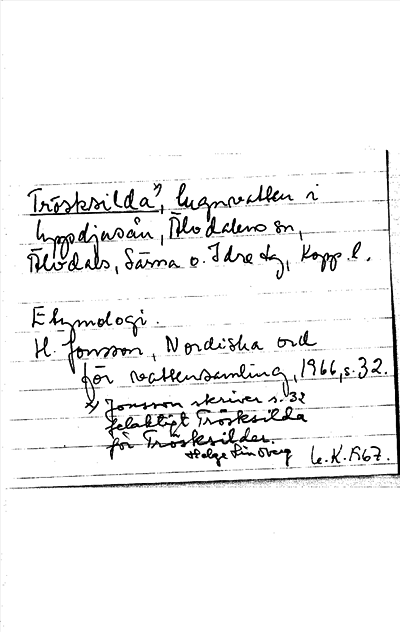 Trösksilda*), lugnvatten i
Uppdjusån, Älvdalens sn,
Älvdals, Särna o. Idre tg, Kopp. l.
Etymologi.
H. Jonsson, Nordiska ord
för vattensamling, 1966, s. 32.
*) Jonsson skriver s. 32
felaktigt Trösksilda
för Trösksilder.
Helge Lindberg L. K. 1967.